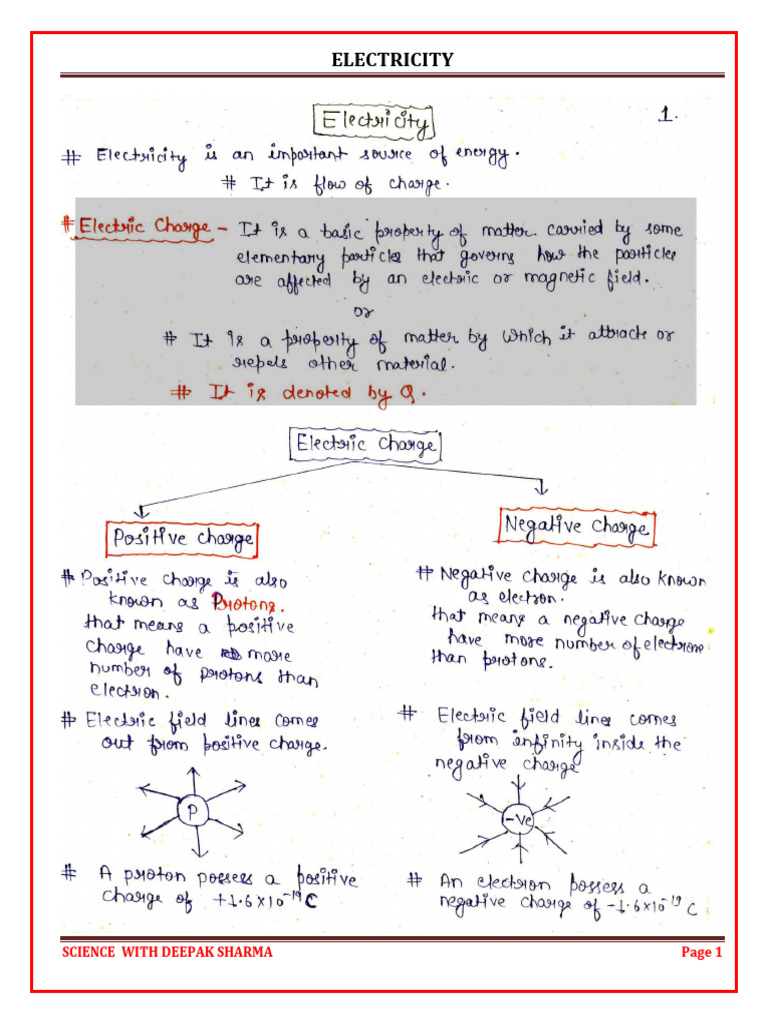 ELECTRICITY
Electricity
1.
# Electricity is an important source of energy.
# It is flow of charge.
# Electric Charge - It is a basic property of matter carried by some
elementary particles that governs how the particles
are affected by an electric or magnetic field.
or
# It is a property of matter by which it attracts or
repels other material.
# It is denoted by Q.
Electric Charge
Positive charge
Negative charge
# Positive charge is also
known as Protons.
that means a positive
charge have more
number of protons than
electron.
# Electric field lines comes
out from positive charge.
P
# A proton possess a positive
charge of +1.6×10⁻¹⁹ C
# Negative charge is also known
as electron.
that means a negative charge
have more number of electrons
than protons.
# Electric field lines comes
from infinity inside the
negative charge
-ve
# An electron possess a
negative charge of -1.6×10⁻¹⁹ C
SCIENCE WITH DEEPAK SHARMA
Page 1